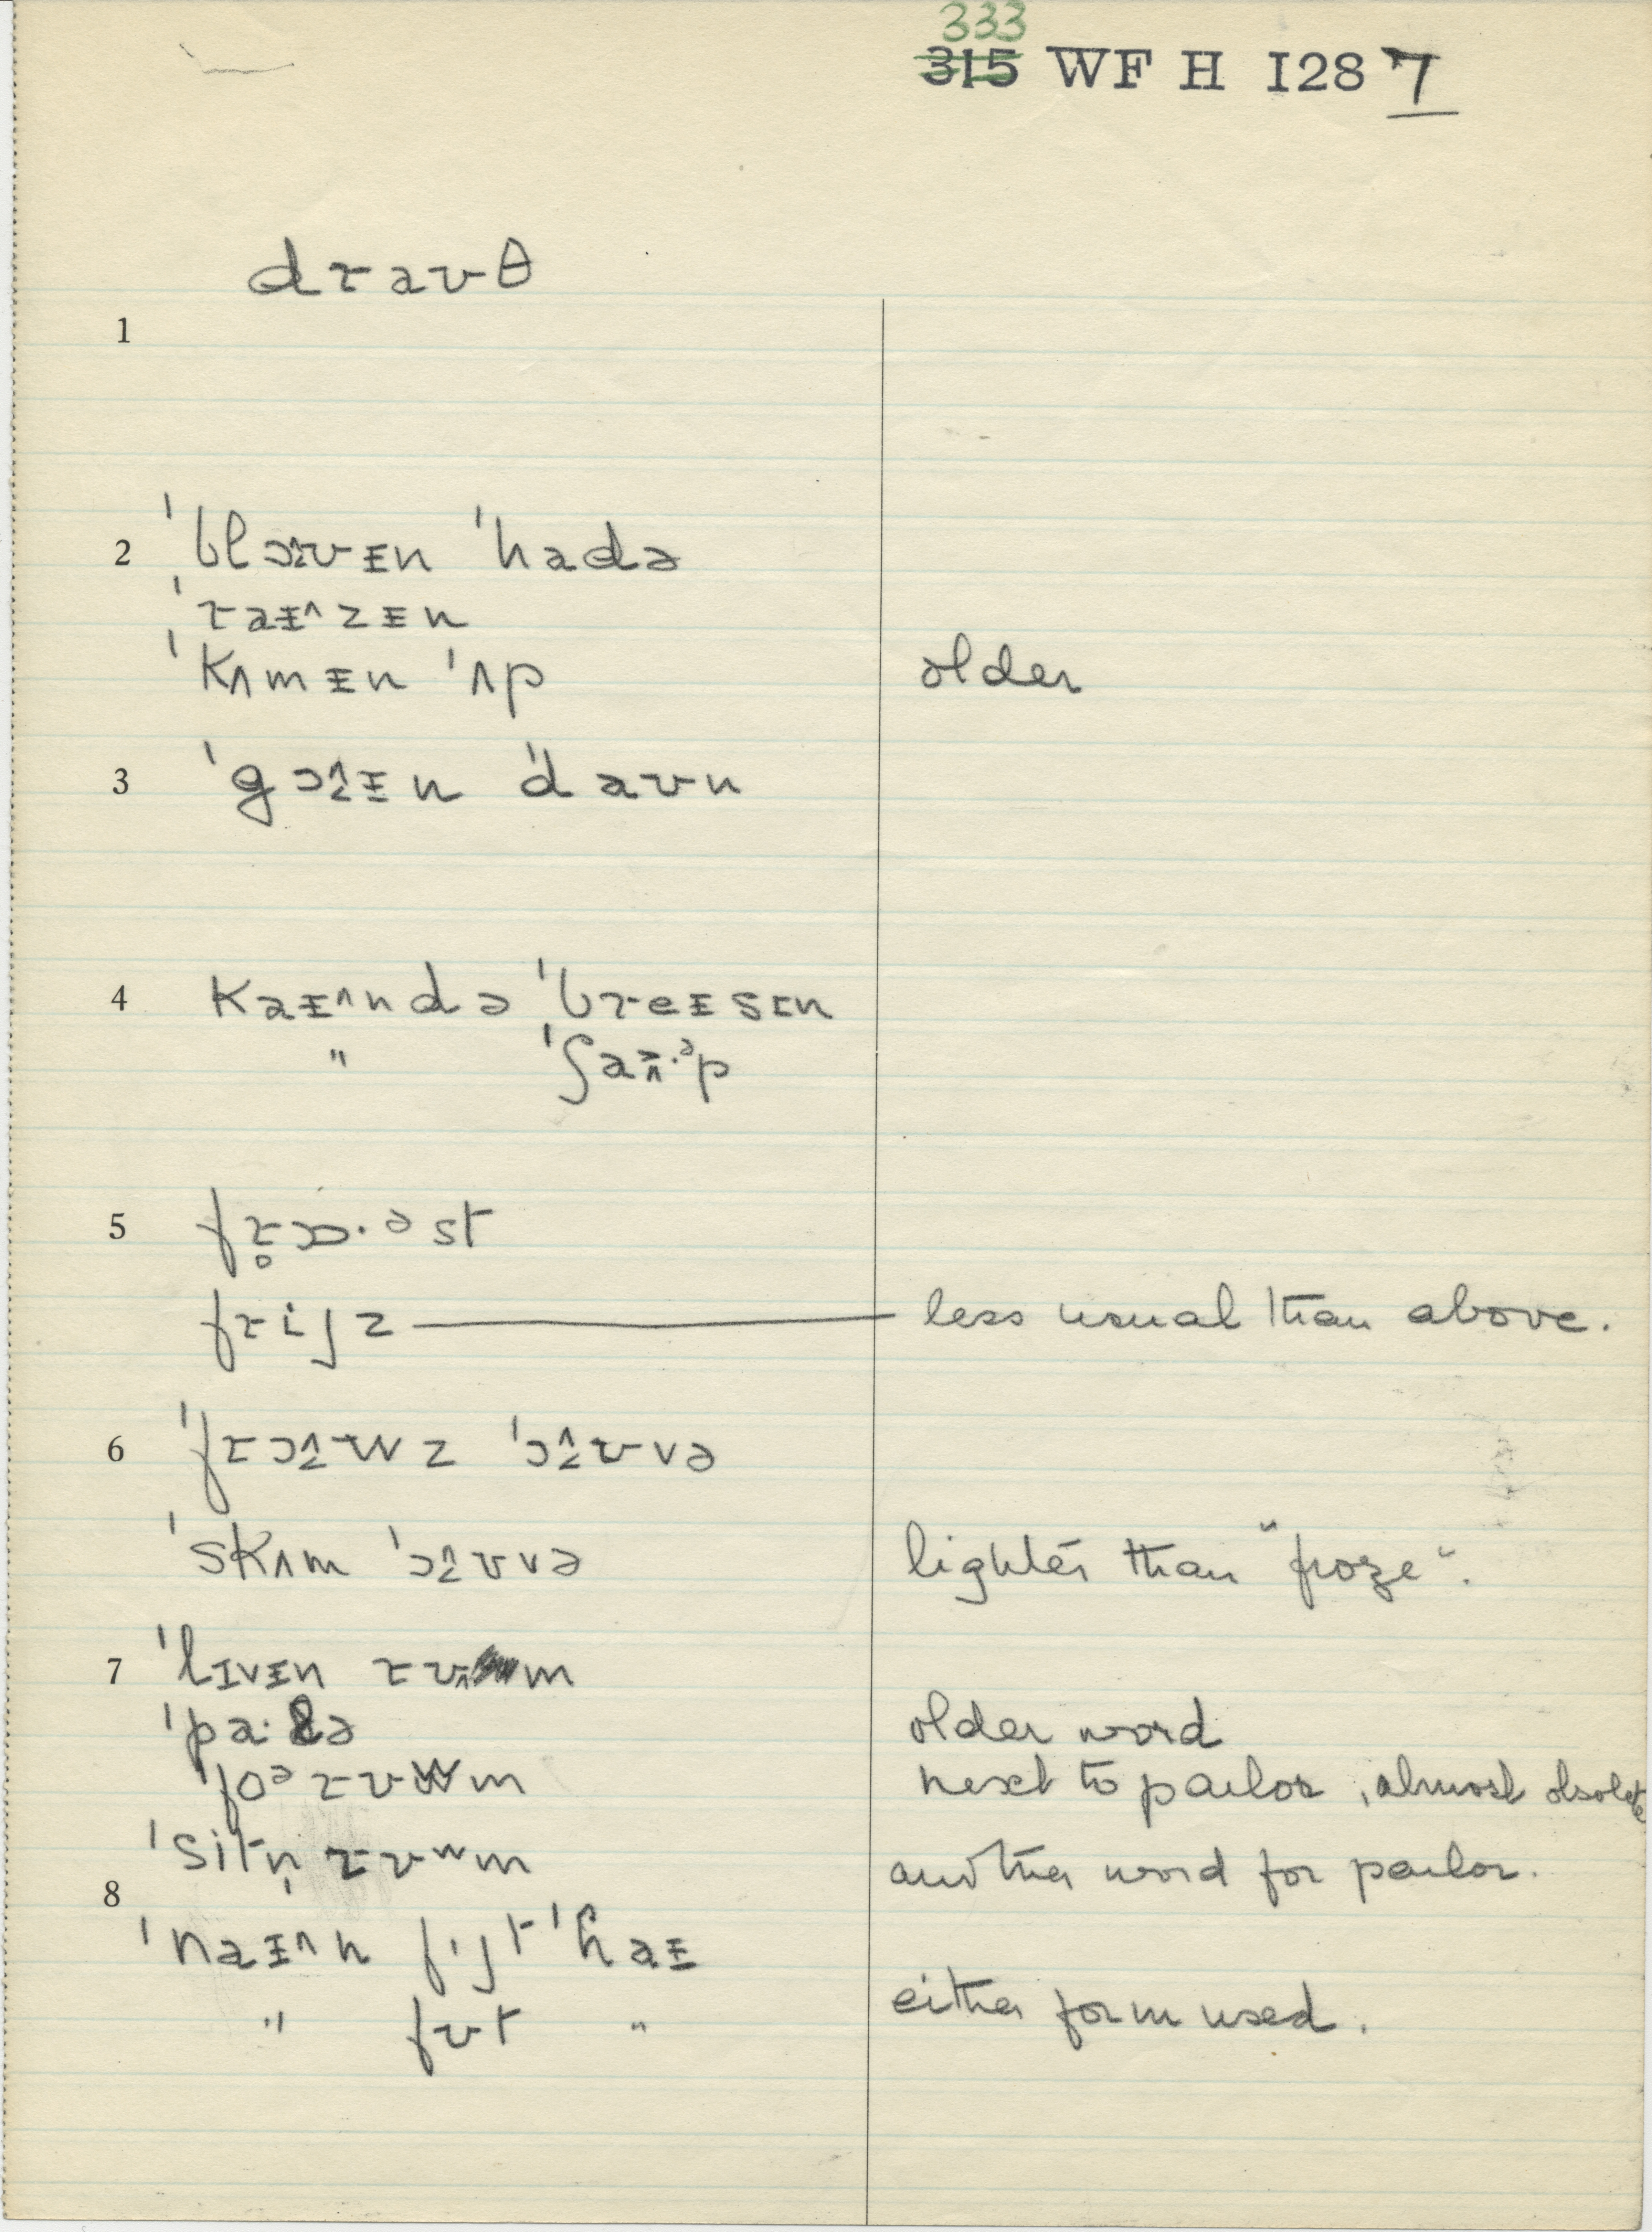 333
315 WF H I28 7
draʊθ
1
2 ˈblɔʊɪn ˈhadə
ˈraɪnzɪn
ˈkʌmɪn ˈʌp older
3 ˈgɔɪn ˈdaʊn
4 kaɪndə ˈbreɪsɪn
" ˈʃaəp
5 frɒ·ᵊst
frijz less usual than above.
6 ˈfrɔwz ˈɔʊvə
ˈskʌm ˈɔʊvə lighter than "froze".
7 ˈlɪvɪn rʊm
ˈpa·lə older word
ˈfoᵊ rʊwm next to parlor, almost obsolete
ˈsitn̩ rʊʷm another word for parlor.
8
ˈnaɪn fijt ˈhaɪ
" fʊt " either form used.